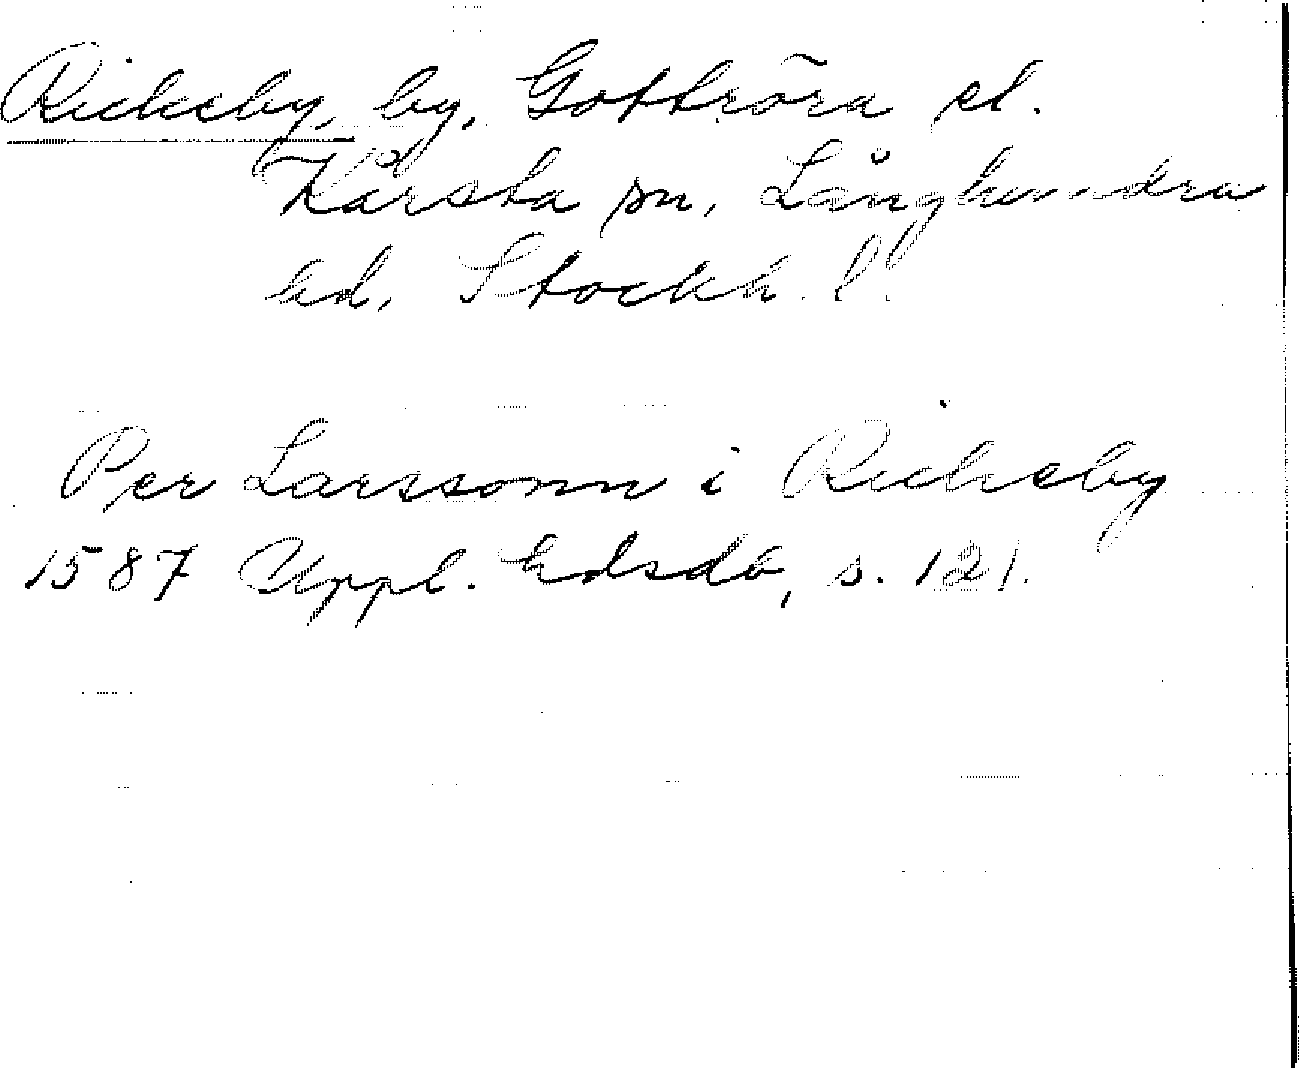 Rickeby, by, Gottröra el.
Kårsta sn, Långhundra
hd, Stockh. l.
Per Larssonn i Rickeby
1587 Uppl. Edsdb, s. 121.